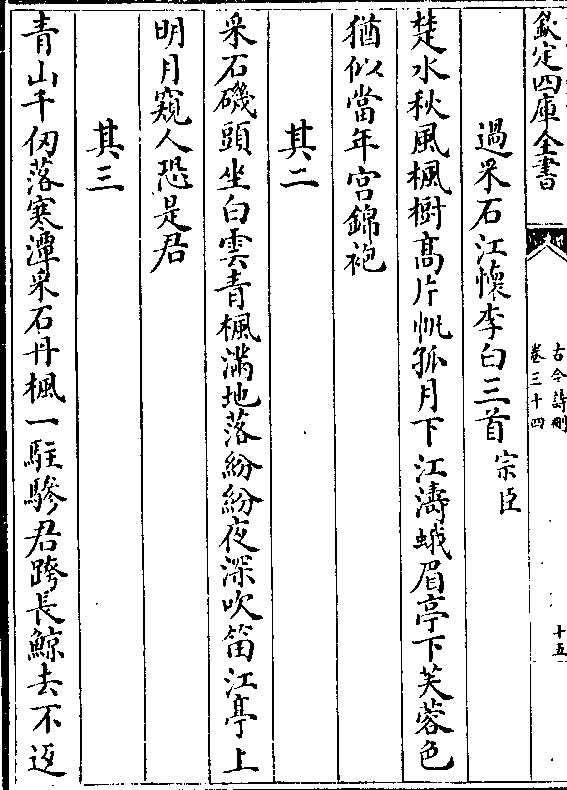 欽定四庫全書
古今詩刪
卷三十四
十五
過采石江懷李白三首宗臣
楚水秋風楓樹髙片㠶孤月下江濤蛾眉亭下芙蓉色
猶似當年宫錦袍
其二
采石磯頭坐白雲青楓滿地落紛紛夜深吹笛江亭上
明月窺人恐是君
其三
青山千仞落寒潭采石丹楓一駐驂君跨長鯨去不返